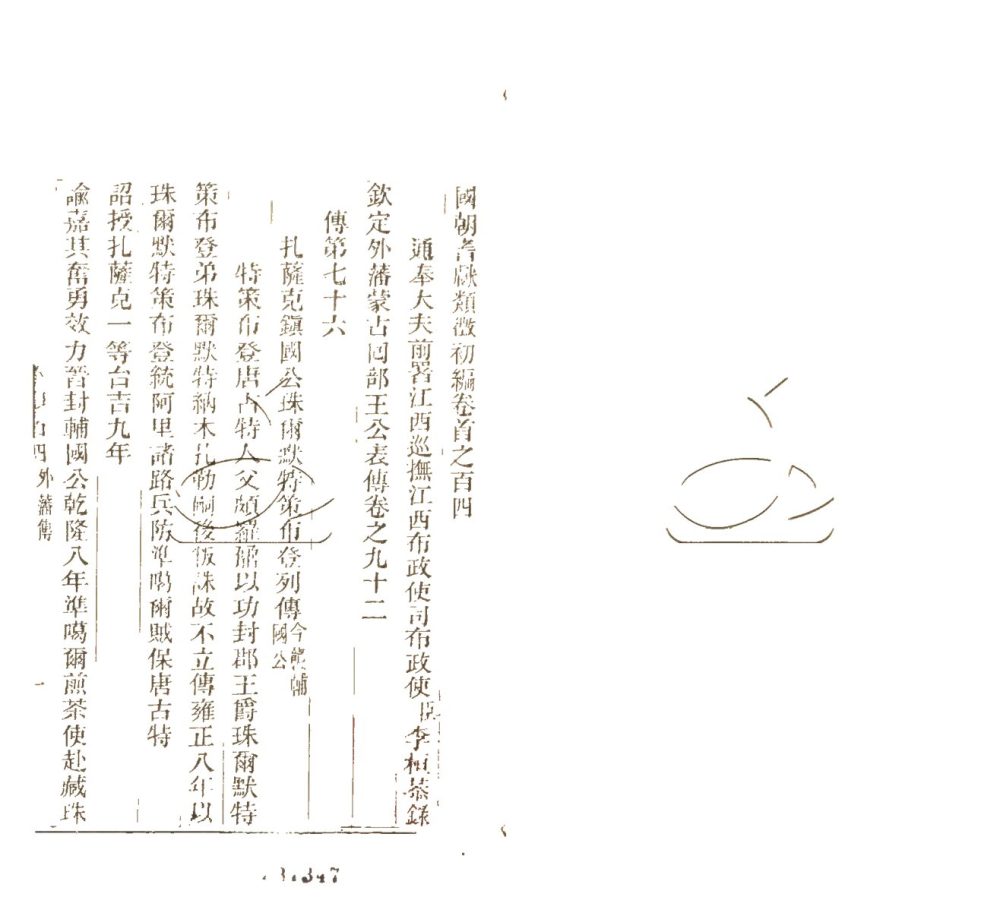 國朝耆獻類徵初編卷首之百四
通奉大夫前署江西巡撫江西布政使司布政使臣李桓恭錄
欽定外藩蒙古回部王公表傳卷之九十二
傳第七十六
扎薩克鎮國公珠爾默特策布登列傳今襲輔國公
特策布登唐古特人父頗羅鼐以功封郡王爵珠爾默特
策布登弟珠爾默特納木扎勒嗣後叛誅故不立傳雍正八年以
珠爾默特策布登統阿里諸路兵防準噶爾賊保唐古特
詔授扎薩克一等台吉九年
諭嘉其奮勇效力晉封輔國公乾隆八年準噶爾煎茶使赴藏珠
百四 外藩傳
一
347